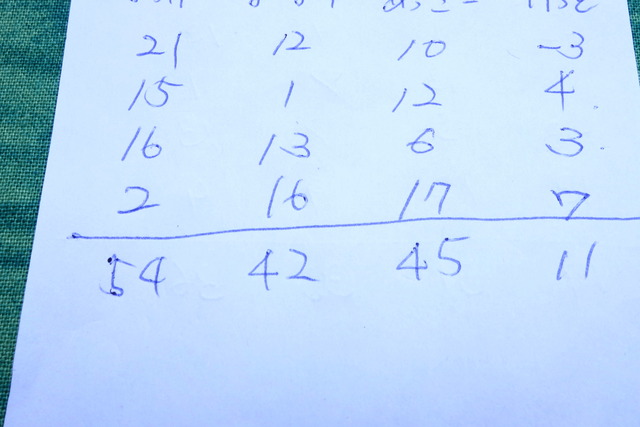 21 12 10 -3
15 1 12 4
16 13 6 3
2 16 17 7
54 42 45 11